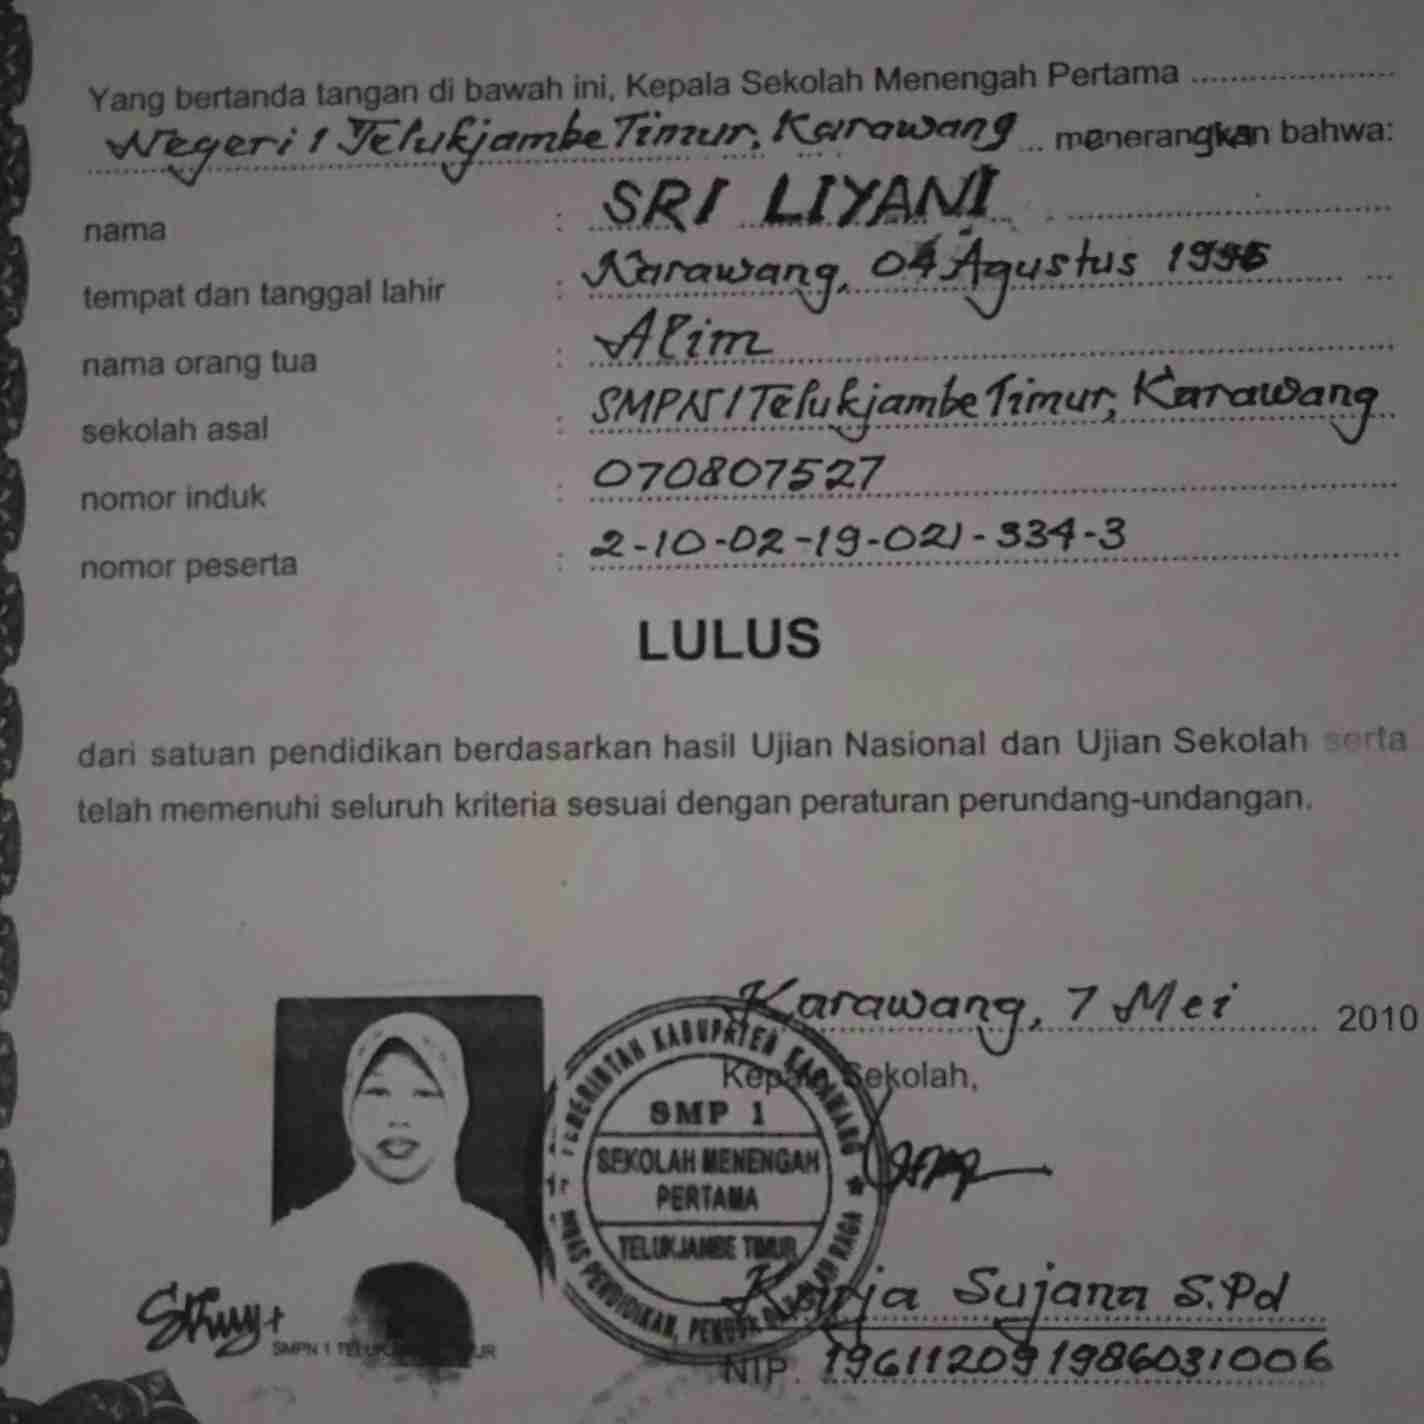 Yang bertanda tangan di bawah ini, Kepala Sekolah Menengah Pertama
Negeri 1 Telukjambe Timur, Karawang menerangkan bahwa:
nama : SRI LIYANI
tempat dan tanggal lahir : Karawang, 04 Agustus
nama orang tua : Alim
sekolah asal : SMPN 1 Telukjambe Timur, Karawang
nomor induk : 070807527
nomor peserta : 2-10-02-19-021-334-3
LULUS
dari satuan pendidikan berdasarkan hasil Ujian Nasional dan Ujian Sekolah serta
telah memenuhi seluruh kriteria sesuai dengan peraturan perundang-undangan.
Karawang, 7 Mei 2010
Kepala Sekolah,
PEMERINTAH KABUPATEN KARAWANG
SMP 1
SEKOLAH MENENGAH
PERTAMA
TELUKJAMBE TIMUR
DINAS PENDIDIKAN, PEMUDA OLAH RAGA
Sujana S.Pd
SMPN 1
NIP. 196112091986031006